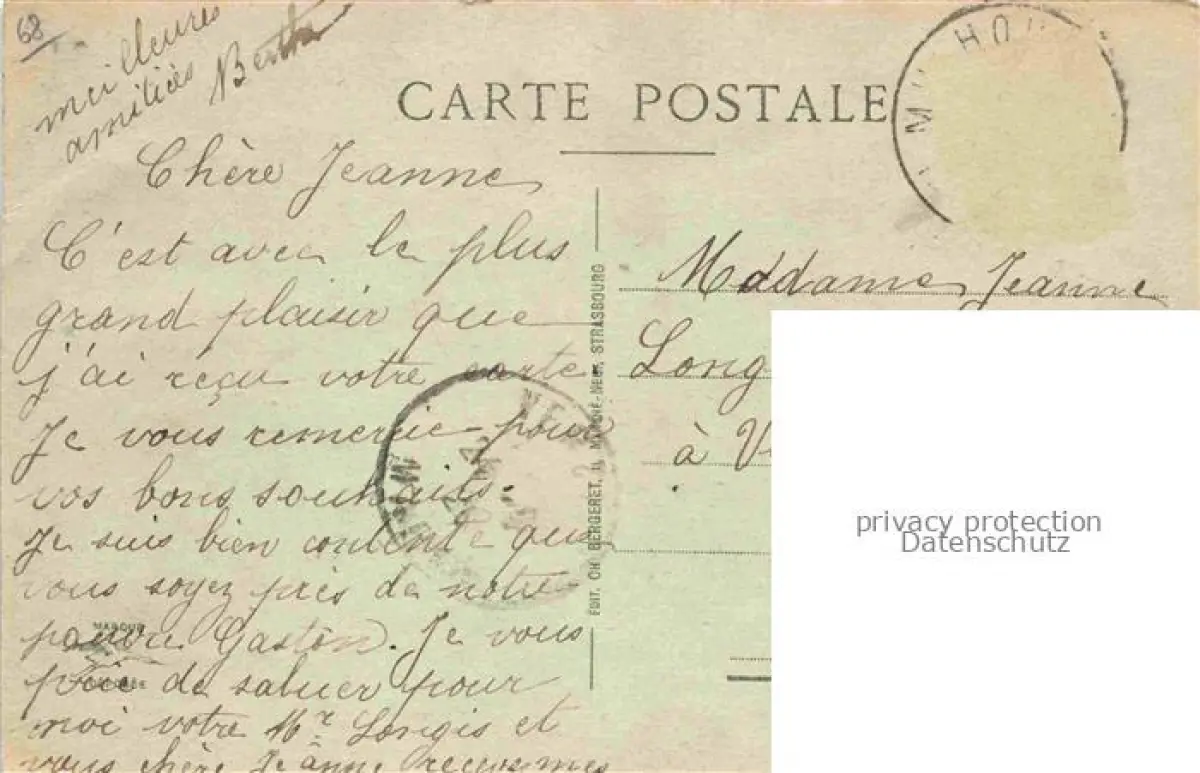 68
meilleures
amitiés Bertha
CARTE POSTALE
Chère Jeanne
C'est avec le plus
grand plaisir que
j'ai reçu votre carte
Je vous remercie pour
vos bons souhaits.
Je suis bien contente que
vous soyez près de notre
pauvre Gaston. Je vous
prie de saluer pour
moi votre Mr Longis et
vous chère Jeanne recevez mes
ÉDIT. CH BERGERET, 11, MARCHÉ-NEUF, STRASBOURG
Maddame Jeanne
Long
à V
MARQUE
privacy protection
Datenschutz